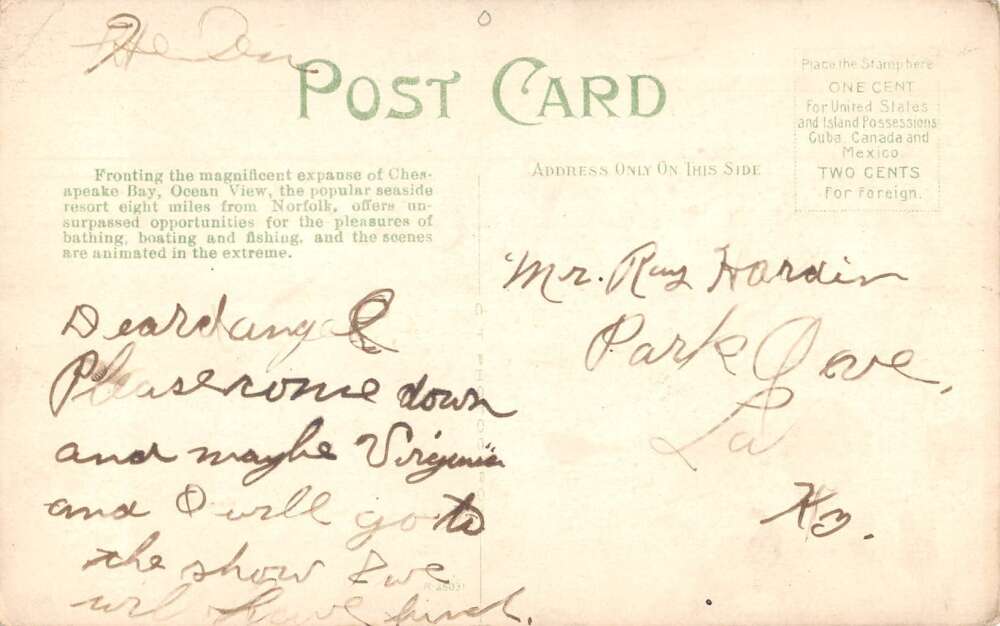 The Den
POST CARD
Place the Stamp here
ONE CENT
For United States
and Island Possessions
Cuba, Canada and
Mexico.
TWO CENTS
For Foreign.
Fronting the magnificent expanse of Ches-
apeake Bay, Ocean View, the popular seaside
resort eight miles from Norfolk, offers un-
surpassed opportunities for the pleasures of
bathing, boating and fishing, and the scenes
are animated in the extreme.
ADDRESS ONLY ON THIS SIDE
Mr. Ray Hardin
Park
La
Ky.
Dear
Please come down
and maybe Virginia
and I will go to
the show & we
will have